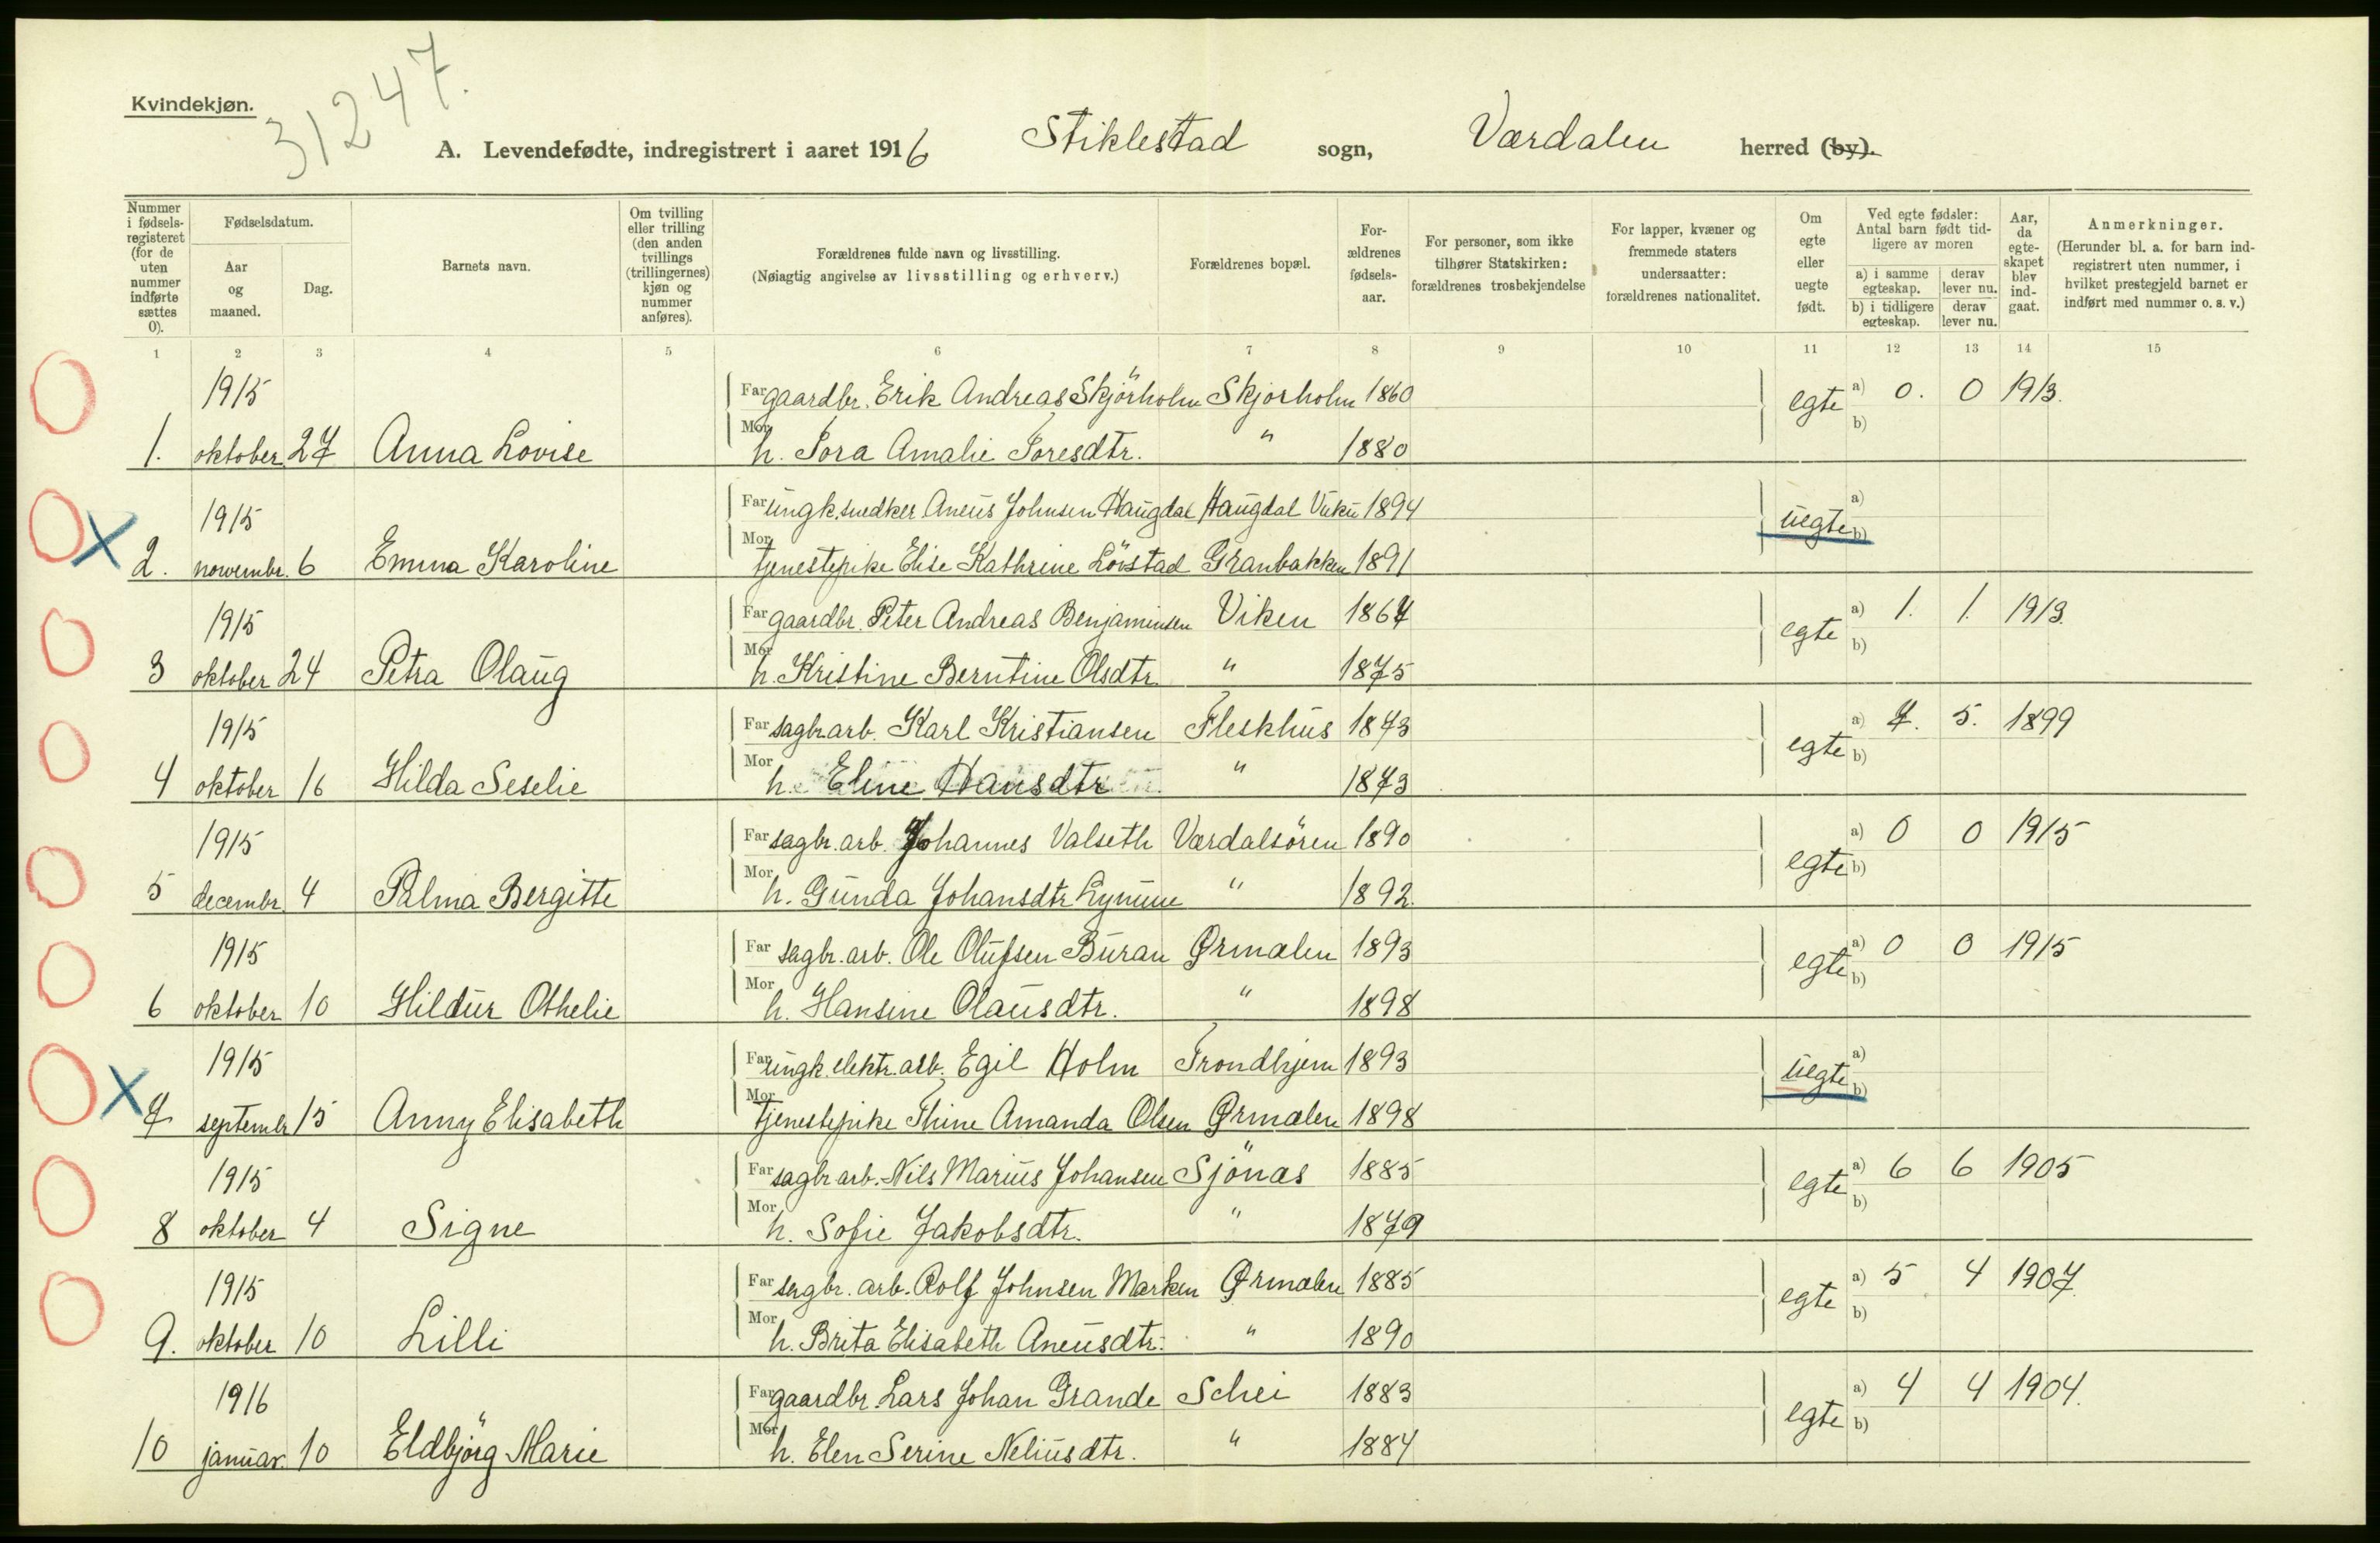 Kvindekjøn.
31247.
A. Levendefødte, indregistrert i aaret 1916 Stiklestad sogn, Værdalen herred (by).
Nummer i fødsels-registeret (for de uten nummer indførte sættes 0).
Fødselsdatum.
Aar og maaned.
Dag.
Barnets navn.
Om tvilling eller trilling (den anden tvillings (trillingernes) kjøn og nummer anføres).
Forældrenes fulde navn og livsstilling.
(Nøiagtig angivelse av livsstilling og erhverv.)
Forældrenes bopæl.
For-ældrenes fødsels-aar.
For personer, som ikke tilhører Statskirken: forældrenes trosbekjendelse
For lapper, kvæner og fremmede staters undersaatter: forældrenes nationalitet.
Om egte eller uegte født.
Ved egte fødsler: Antal barn født tid-ligere av moren
a) i samme egteskap. derav lever nu.
b) i tidligere egteskap. derav lever nu.
Aar, da egte-skapet blev ind-gaat.
Anmerkninger.
(Herunder bl. a. for barn ind-registrert uten nummer, i hvilket prestegjeld barnet er indført med nummer o. s. v.)
1 2 3 4 5 6 7 8 9 10 11 12 13 14 15
1915 Far gaardbr. Erik Andreas Skjörholm Skjörholm 1860 egte a) 0. 0 1913.
1. oktober 27 Anna Lovise Mor h. Tora Amalie Toresdtr. " 1880 b)
1915 Far ungk. snedker Aneus Johnsen Haugdal Haugdal Vuku 1894 uegte a)
2. novembr. 6 Emma Karoline Mor tjenestepike Elise Kathrine Lövstad Granbakken 1891 b)
1915 Far gaardbr. Peter Andreas Benjaminsen Viken 1867 egte a) 1. 1. 1913.
3 oktober 24 Petra Olaug Mor h. Kristine Berntine Olsdtr. " 1875 b)
1915 Far sagbr arb. Karl Kristiansen Fleskhus 1873 egte a) 7. 5. 1899
4 oktober 16 Hilda Seselie Mor h. Eline Hansdtr " 1873 b)
1915 Far sagbr. arb. Johannes Valseth Værdalsören 1890 egte a) 0 0 1915
5 decembr. 4 Palma Bergitte Mor h. Gunda Johansdtr Lynum " 1892. b)
1915 Far sagbr. arb. Ole Olufsen Buran Ørmælen 1893 egte a) 0 0 1915
6 oktober 10 Hildur Othelie Mor h. Hansine Olausdtr. " 1898 b)
1915 Far ungk. elektr. arb. Egil Holm Trondhjem 1893 uegte a)
7 septembr 15 Anny Elisabeth Mor tjenestepike Thine Amanda Olsen Ørmælen 1898 b)
1915 Far sagbr arb. Nils Marius Johansen Sjönæs 1885 egte a) 6 6 1905
8 oktober 4 Signe Mor h. Sofie Jakobsdtr. " 1879 b)
1915 Far sagbr. arb. Rolf Johnsen Marken Ørmælen 1885 egte a) 5 4 1907.
9. oktober 10 Lilli Mor h. Brita Elisabeth Aneusdtr. " 1890 b)
1916 Far gaardbr. Lars Johan Grande Schei 1883 egte a) 4 4 1904.
10 januar. 10 Eldbjörg Marie Mor h. Elen Serine Neliusdtr. " 1884 b)